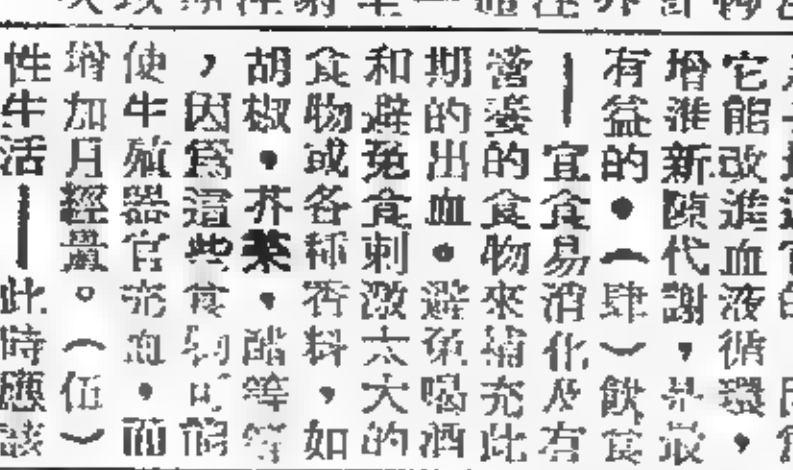 它能改進血液循環，
增進新陳代謝，是最
有益的。（肆）飲食
｜宜食易消化及有
營養的食物來補充此
期的出血。避免喝酒
和避免食刺激太大的
食物或各種香料，如
胡椒，芥菜，醋等等
，因為這些食物可能
使生殖器官充血，而
增加月經量。（伍）
性生活｜此時應該